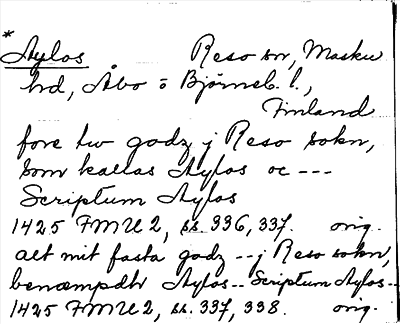 * Aylos Reso sn, Masku
hd, Åbo o Björneb. l.,
Finland
fore tw godz j Reso sokn,
som kallas Aylos oc ---
Scriptum Aylos
1425 FMU 2, ss. 336, 337. orig.
alt mit fasta godz -- j Reso sokn,
benæmpdh Aylos -- Scriptum Aylos --
1425 FMU 2, ss. 337, 338. orig.